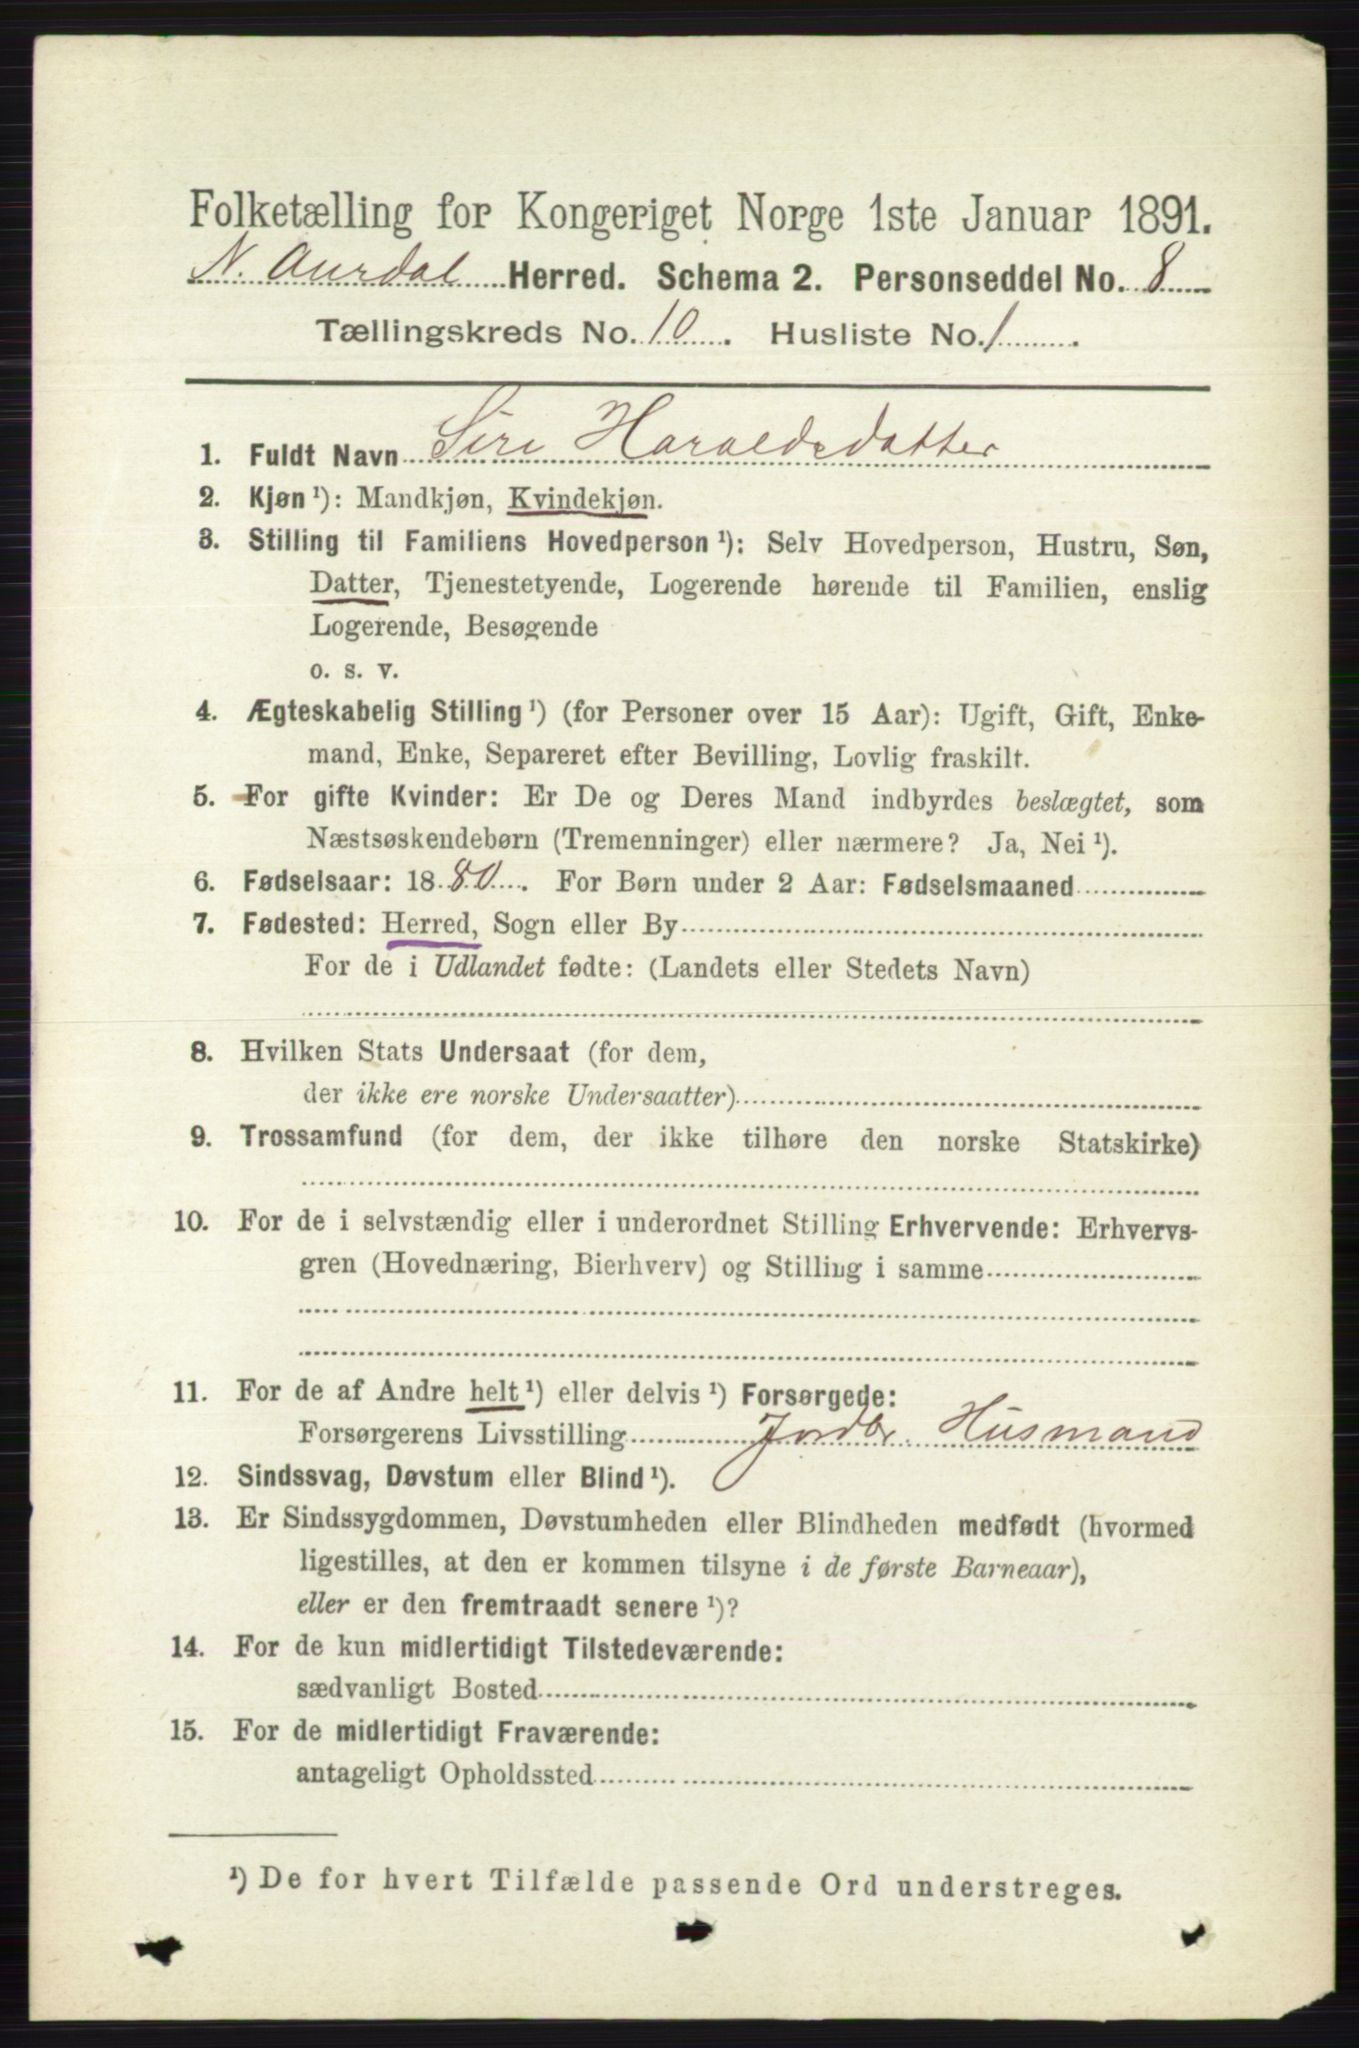 Folketælling for Kongeriget Norge 1ste Januar 1891.
N. Aurdal Herred. Schema 2. Personseddel No. 8
Tællingskreds No. 10. Husliste No. 1.
1. Fuldt Navn Siri Haraldsdatter
2. Kjøn ¹): Mandkjøn, Kvindekjøn.
3. Stilling til Familiens Hovedperson ¹): Selv Hovedperson, Hustru, Søn,
Datter, Tjenestetyende, Logerende hørende til Familien, enslig
Logerende, Besøgende
o. s. v.
4. Ægteskabelig Stilling ¹) (for Personer over 15 Aar): Ugift, Gift, Enke-
mand, Enke, Separeret efter Bevilling, Lovlig fraskilt.
5. For gifte Kvinder: Er De og Deres Mand indbyrdes beslægtet, som
Næstsøskendebørn (Tremenninger) eller nærmere? Ja, Nei ¹).
6. Fødselsaar: 1880. For Børn under 2 Aar: Fødselsmaaned
7. Fødested: Herred, Sogn eller By
For de i Udlandet fødte: (Landets eller Stedets Navn)
8. Hvilken Stats Undersaat (for dem,
der ikke ere norske Undersaatter)
9. Trossamfund (for dem, der ikke tilhøre den norske Statskirke)
10. For de i selvstændig eller i underordnet Stilling Erhvervende: Erhvervs-
gren (Hovednæring, Bierhverv) og Stilling i samme
11. For de af Andre helt ¹) eller delvis ¹) Forsørgede:
Forsørgerens Livsstilling Jordbr. Husmand
12. Sindssvag, Døvstum eller Blind ¹).
13. Er Sindssygdommen, Døvstumheden eller Blindheden medfødt (hvormed
ligestilles, at den er kommen tilsyne i de første Barneaar),
eller er den fremtraadt senere ¹)?
14. For de kun midlertidigt Tilstedeværende:
sædvanligt Bosted
15. For de midlertidigt Fraværende:
antageligt Opholdssted
¹) De for hvert Tilfælde passende Ord understreges.